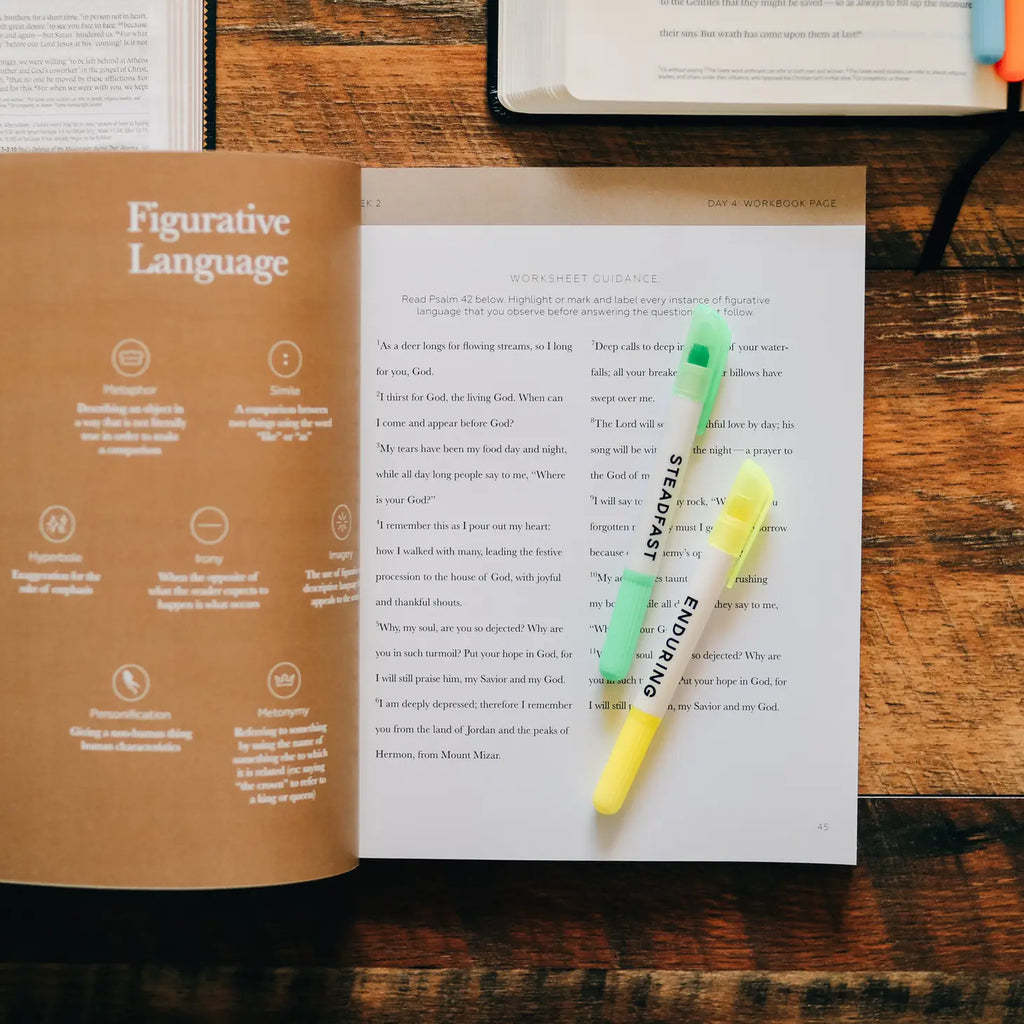 brothers, for a short time, in person not in heart,
great desire, to see you face to face. ¹⁸because
and again—but Satan hindered us. ¹⁹For what
before our Lord Jesus at his coming? Is it not
were willing to be left behind at Athens
and God's coworker in the gospel of Christ,
that no one be moved by these afflictions. For
for this. ⁴For when we were with you, we kept
to the Gentiles that they might be saved—so as always to fill up the measure
their sins. But wrath has come upon them at last!
Figurative
Language
Metaphor
Describing an object in
a way that is not literally
true in order to make
a comparison
Simile
A comparison between
two things using the word
"like" or "as"
Hyperbole
Exaggeration for the
sake of emphasis
Irony
When the opposite of
what the reader expects to
happen is what occurs
Imagery
The use of
descriptive
appeals to the
Personification
Giving a non-human thing
human characteristics
Metonymy
Referring to something
by using the name of
something else to which
it is related (ex: saying
"the crown" to refer to
a king or queen)
EK 2
DAY 4: WORKBOOK PAGE
WORKSHEET GUIDANCE:
Read Psalm 42 below. Highlight or mark and label every instance of figurative
language that you observe before answering the question t follow.
¹As a deer longs for flowing streams, so I long
for you, God.
²I thirst for God, the living God. When can
I come and appear before God?
³My tears have been my food day and night,
while all day long people say to me, "Where
is your God?"
⁴I remember this as I pour out my heart:
how I walked with many, leading the festive
procession to the house of God, with joyful
and thankful shouts.
⁵Why, my soul, are you so dejected? Why are
you in such turmoil? Put your hope in God, for
I will still praise him, my Savior and my God.
⁶I am deeply depressed; therefore I remember
you from the land of Jordan and the peaks of
Hermon, from Mount Mizar.
⁷Deep calls to deep in of your water-
falls; all your breake billows have
swept over me.
⁸The Lord will se thful love by day; his
song will be wit the night—a prayer to
the God of m
⁹I will say to y rock, "W u
forgotten must I g sorrow
because emy's op
¹⁰My a es taunt rushing
my bo ile all d they say to me,
"Wh our G
¹¹W soul so dejected? Why are
you in such t Put your hope in God, for
I will still m, my Savior and my God.
STEADFAST
ENDURING
45